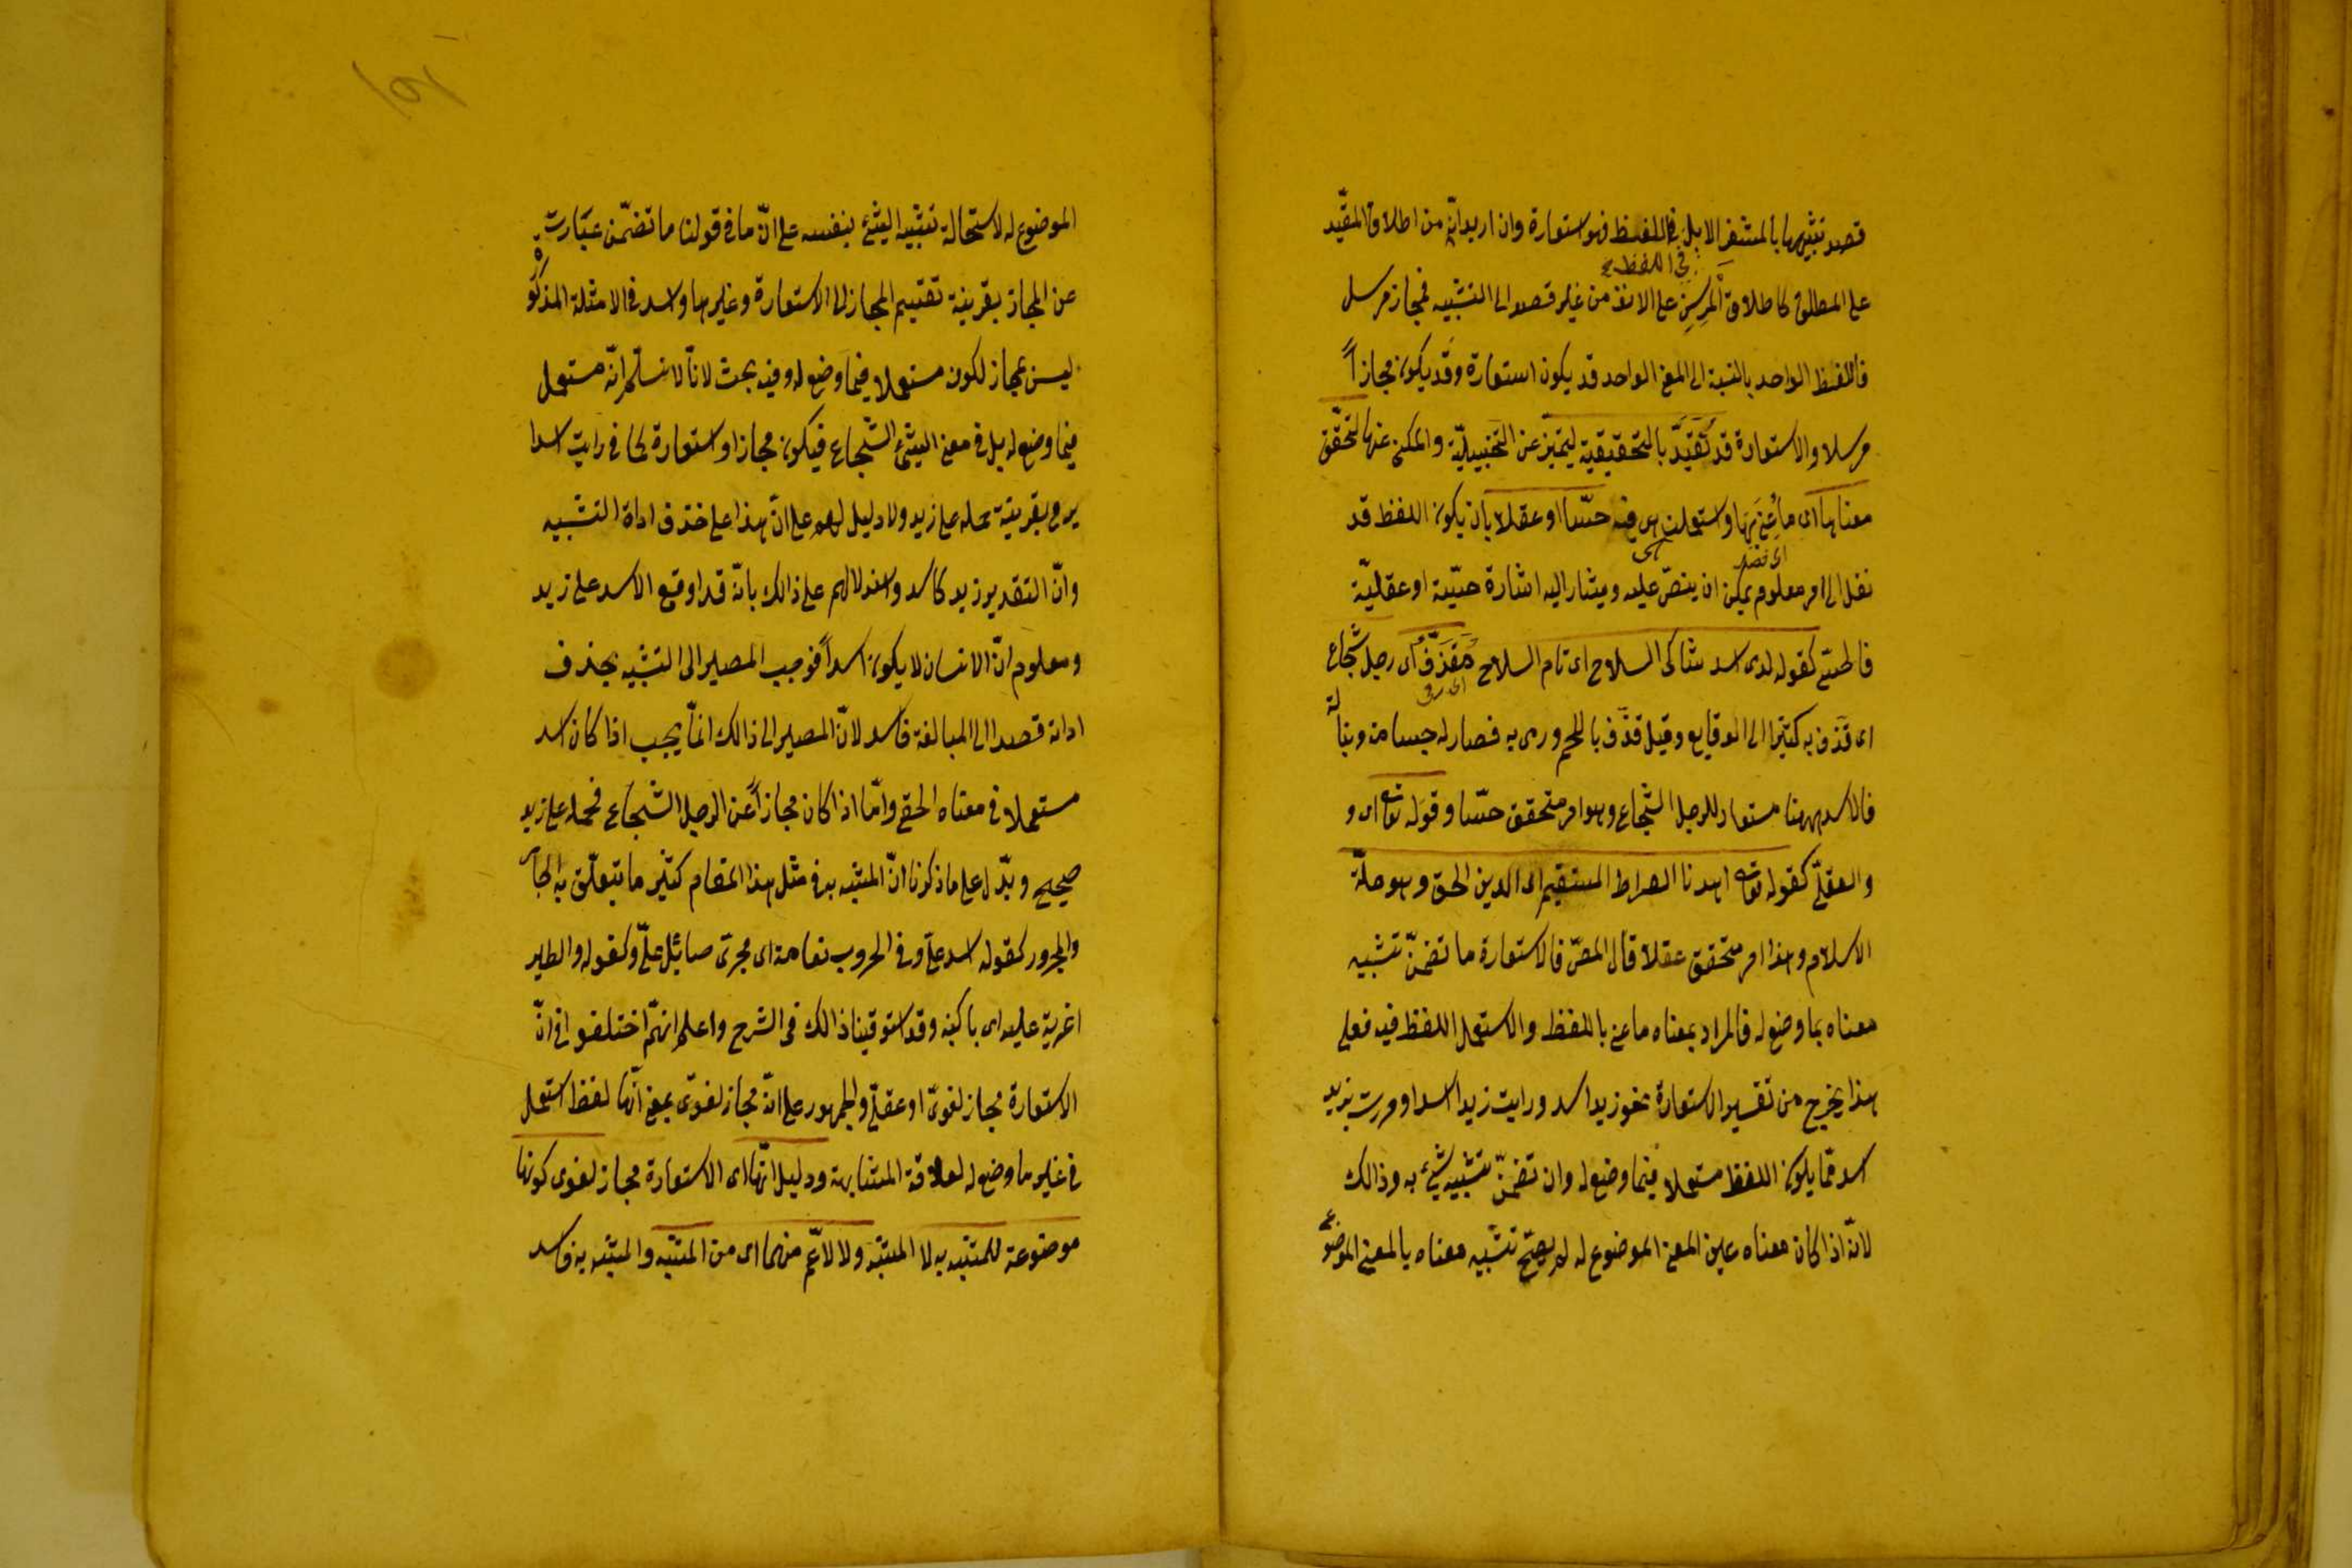 قصد تشبيهها بالمشفر الابل في الغلظ فهو استعارة وان اريد انه من اطلاق المقيّد
في اللفظ
على المطلق كاطلاق المرسن على الانف من غير قصد الى التشبيه فمجاز مرسل
فاللفظ الواحد بالنسبة الى المعنى الواحد قد يكون استعارة وقد يكون مجازاً
مرسلا والاستعارة قد تقيّد بالتحقيقية ليتميّز عن التخييليّة والمكنى عنها لتحقّق
معناها اى ما عنى بها واستعملت هى فيه حسّا او عقلا بان يكون اللفظ قد
نقل الى امر معلوم يمكن ان ينصّ عليه ويشار اليه اشارة حسّية او عقليّة
فالحسّى كقوله لدى اسد شاكى السلاح اى تام السلاح مقذّف اى رجل شجاع
اى قذف به كثيرا الى الوقايع وقيل قذّف باللحم ورمى به فصار له جسامة ونبالة
فالاسد ههنا مستعار للرجل الشجاع وهو امر متحقق حسّا وقوله تعا اى و
والعقلىّ كقوله تعا اهدنا الصراط المستقيم اى الدين الحق وهو ملّة
الاسلام وهذا امر متحقق عقلا قال المصّ فالاستعارة ما تضمّن تشبيه
معناه بما وضع له فالمراد بمعناه ما عنى باللفظ والاستعمل اللفظ فيه فعلى
هذا يخرج من تفسير الاستعارة نحو زيد اسد ورايت زيدا اسدا ومررت بزيد
اسد ممّا يكون اللفظ مستعملا فيما وضع له وان تضمّن تشبيه شئ به وذالك
لانّه اذا كان معناه عين المعنى الموضوع له لم يصحّ تشبيه معناه بالمعنى الموضوع
الموضوع له لاستحالة تشبيه الشئ بنفسه على انّ ما فى قولنا ما تضمّن عبارت
عن المجاز بقرينة تقسيم المجاز الى الاستعارة وغيرها واسد فى الامثلة المذكو
ليس بمجاز لكونه مستعملا فيما وضع له وفيه بحث لانّا لا نسلّم انّه مستعمل
فيما وضع له بل فى معنى الشئ الشّجاع فيكون مجازا واستعارة كما فى رايت اسدا
يرمى بقرينة حمله على زيد ولا دليل لهم على انّ هذا على خذف اداة التشبيه
وانّ التقدير زيد كاسد واستدلالهم على ذالك بانّه قد اوقع الاسد على زيد
ومعلوم انّ الانسان لا يكون اسداً فوجب المصير الى التشبيه بحذف
اداته قصدا الى المبالغة فاسد لانّ المصير الى ذالك انّما يجب اذا كان اسد
مستعملا فى معناه الحقى وامّا اذا كان مجازاً عن الرجل الشجاع فحمله على زيد
صحيح ويدّل على ما ذكرنا انّ المشبه به فى مثل هذا المقام كثير ما يتعلّق به الجار
والمجرور كقوله اسد علىّ وفى الحروب نعامة اى مجرى صائل علىّ وكقوله والطير
اغربة عليه اى باكية وقد استوفينا ذالك فى الشرح واعلم انهّم اختلفو افى انّ
الاستعارة مجاز لغوىّ او عقلىّ والجمهور على انّه مجاز لغوىّ بمعنى انّها لفظ استعمل
فى غير ما وضع له لعلاقة المشابهة ودليل انّها اى الاستعارة مجاز لغوى كونها
موضوعة للمشبه به لا المشبّه ولا لاعّم منهما اى من المشبّه والمشبّه به فاسد